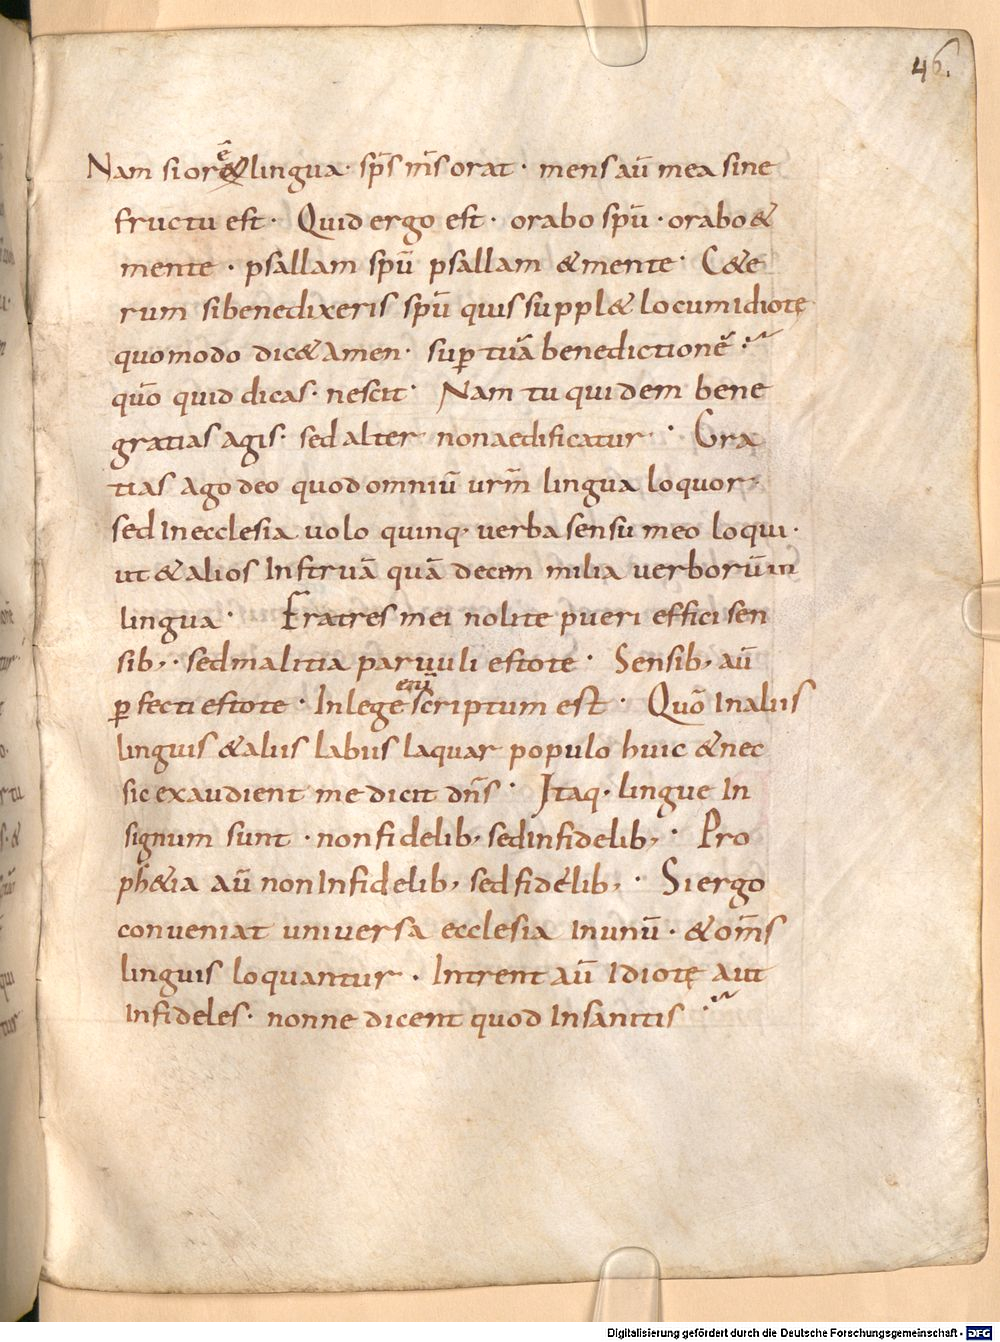 46.
Nam si orē& lingua· sp̄s m̄s orat· mens aū mea sine
fructu est· Quid ergo est· orabo spū· orabo &
mente· psallam spū psallam & mente· C&e
rum si benedixeris spū quis suppl& locum idiotę
quomodo dic& amen· sup tuā benedictionē·
quō quid dicas· nescit· Nam tu quidem bene
gratias agis· sed alter non aedificatur· Gra
tias ago deo quod omniū urm̄ lingua loquor,
sed in ecclesia uolo quinq· uerba sensu meo loqui·
ut & alios instruā quā decem milia uerborū in
lingua· Fratres mei nolite pueri effici sen
sib,· sed malitia paruuli estote· Sensib, aū
ꝑfecti estote· In lege enī scriptum est· Quō in aliis
linguis & aliis labiis laquar populo huic & nec
sic exaudient me dicit dn̄s· Itaq· lingue in
signum sunt· non fidelib, sed infidelib,· Pro
ph&ia aū non infidelib, sed fidelib,· Si ergo
conueniat uniuersa ecclesia in unū· & om̄s
linguis loquantur· Intrent aū idiotę aut
infideles· nonne dicent quod insanitis
Digitalisierung gefördert durch die Deutsche Forschungsgemeinschaft - DFG